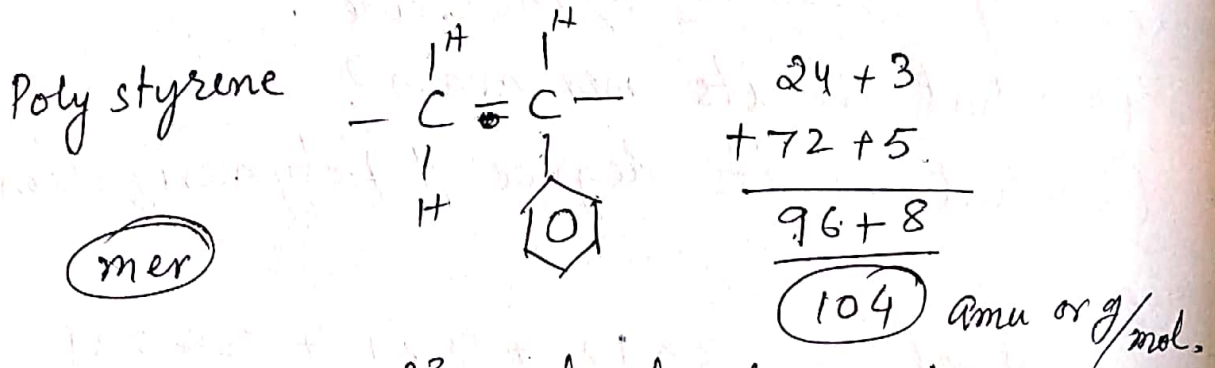 Poly styrene
H H
- C = C -
H
mer
24 + 3
+ 72 + 5
96 + 8
104 amu or g/mol.